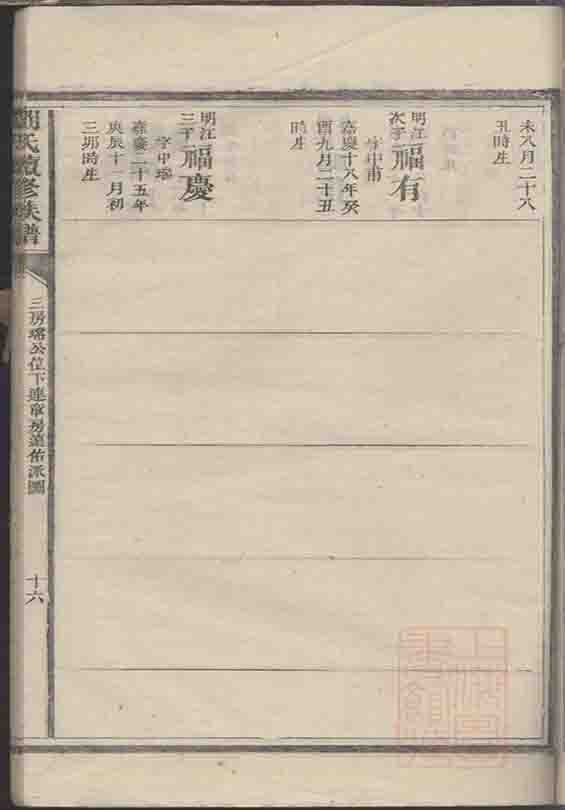 未八月二十八
丑時生
明江
次子
福有
字中甫
嘉慶十八年癸
酉九月二十五
時生
明江
三子
福慶
字中
嘉慶二十五年
庚辰十一月初
三卯時生
氏續修族譜
三房 公位下連 房 佑派圖
十六